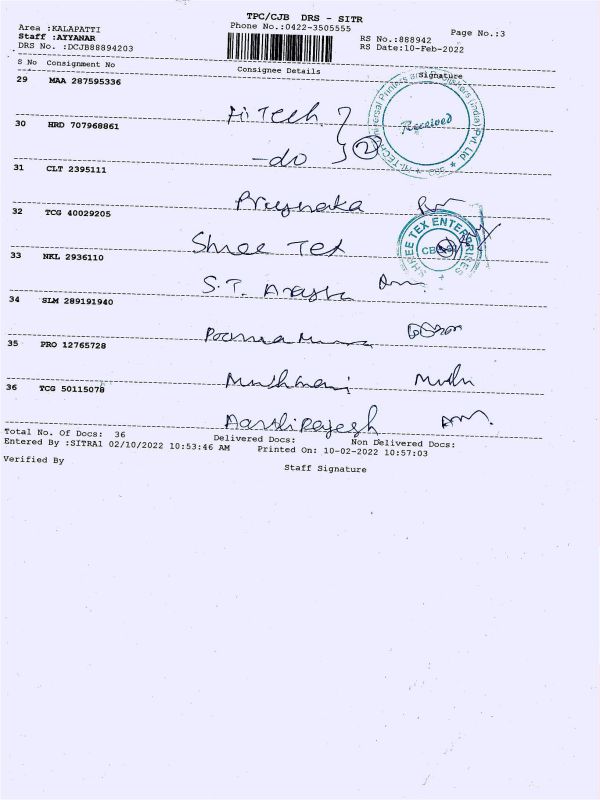 TPC/CJB DRS - SITR
Area :KALAPATTI
Phone No.:0422-3505555
Page No.:3
Staff :AYYANAR
RS No.:888942
DRS No. :DCJB88894203
RS Date:10-Feb-2022
S No Consignment No
Consignee Details
Signature
29 MAA 287595336
Hi Tech
Received
30 HRD 707968861
-do
2
31 CLT 2395111
Priyanaka
32 TCG 40029205
Shree Tex
SHREE TEX ENTERPRISES
33 NKL 2936110
S.T.
34 SLM 289191940
35 PRO 12765728
Muthumani Muthu
36 TCG 50115078
Aarthi Rajesh
Total No. Of Docs: 36
Delivered Docs:
Non Delivered Docs:
Entered By :SITRA1 02/10/2022 10:53:46 AM
Printed On: 10-02-2022 10:57:03
Verified By
Staff Signature